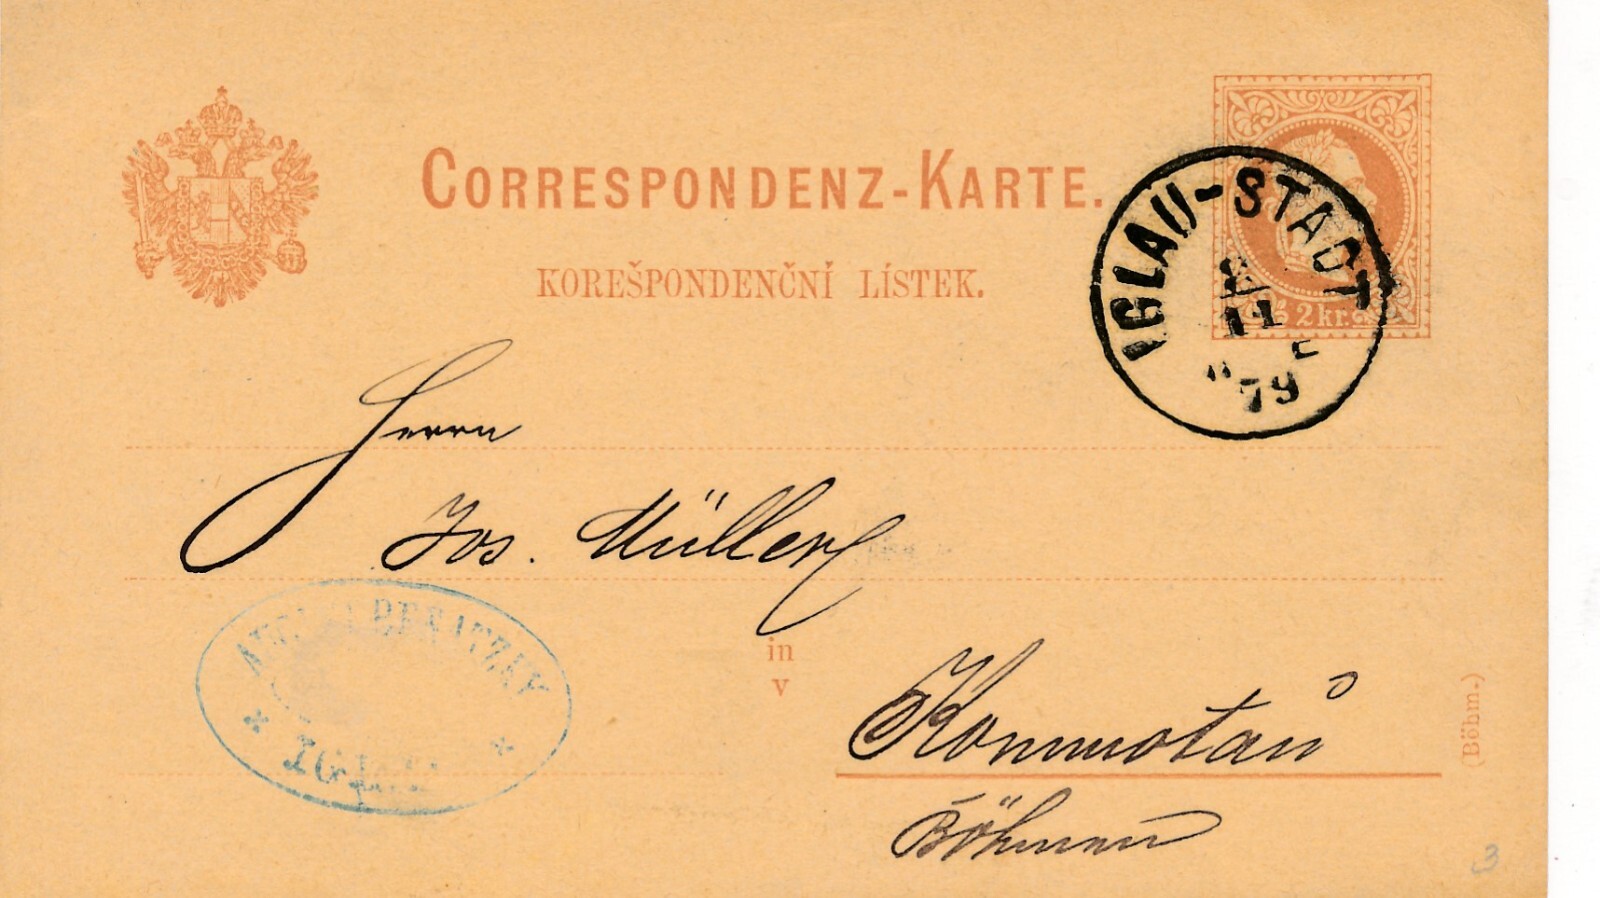 CORRESPONDENZ-KARTE.
KOREŠPONDENČNÍ LÍSTEK.
2 kr.
IGLAU-STADT
11
79
Herrn
Jos. Müller
in
v
Kommotau
Böhmen
(Böhm.)
3